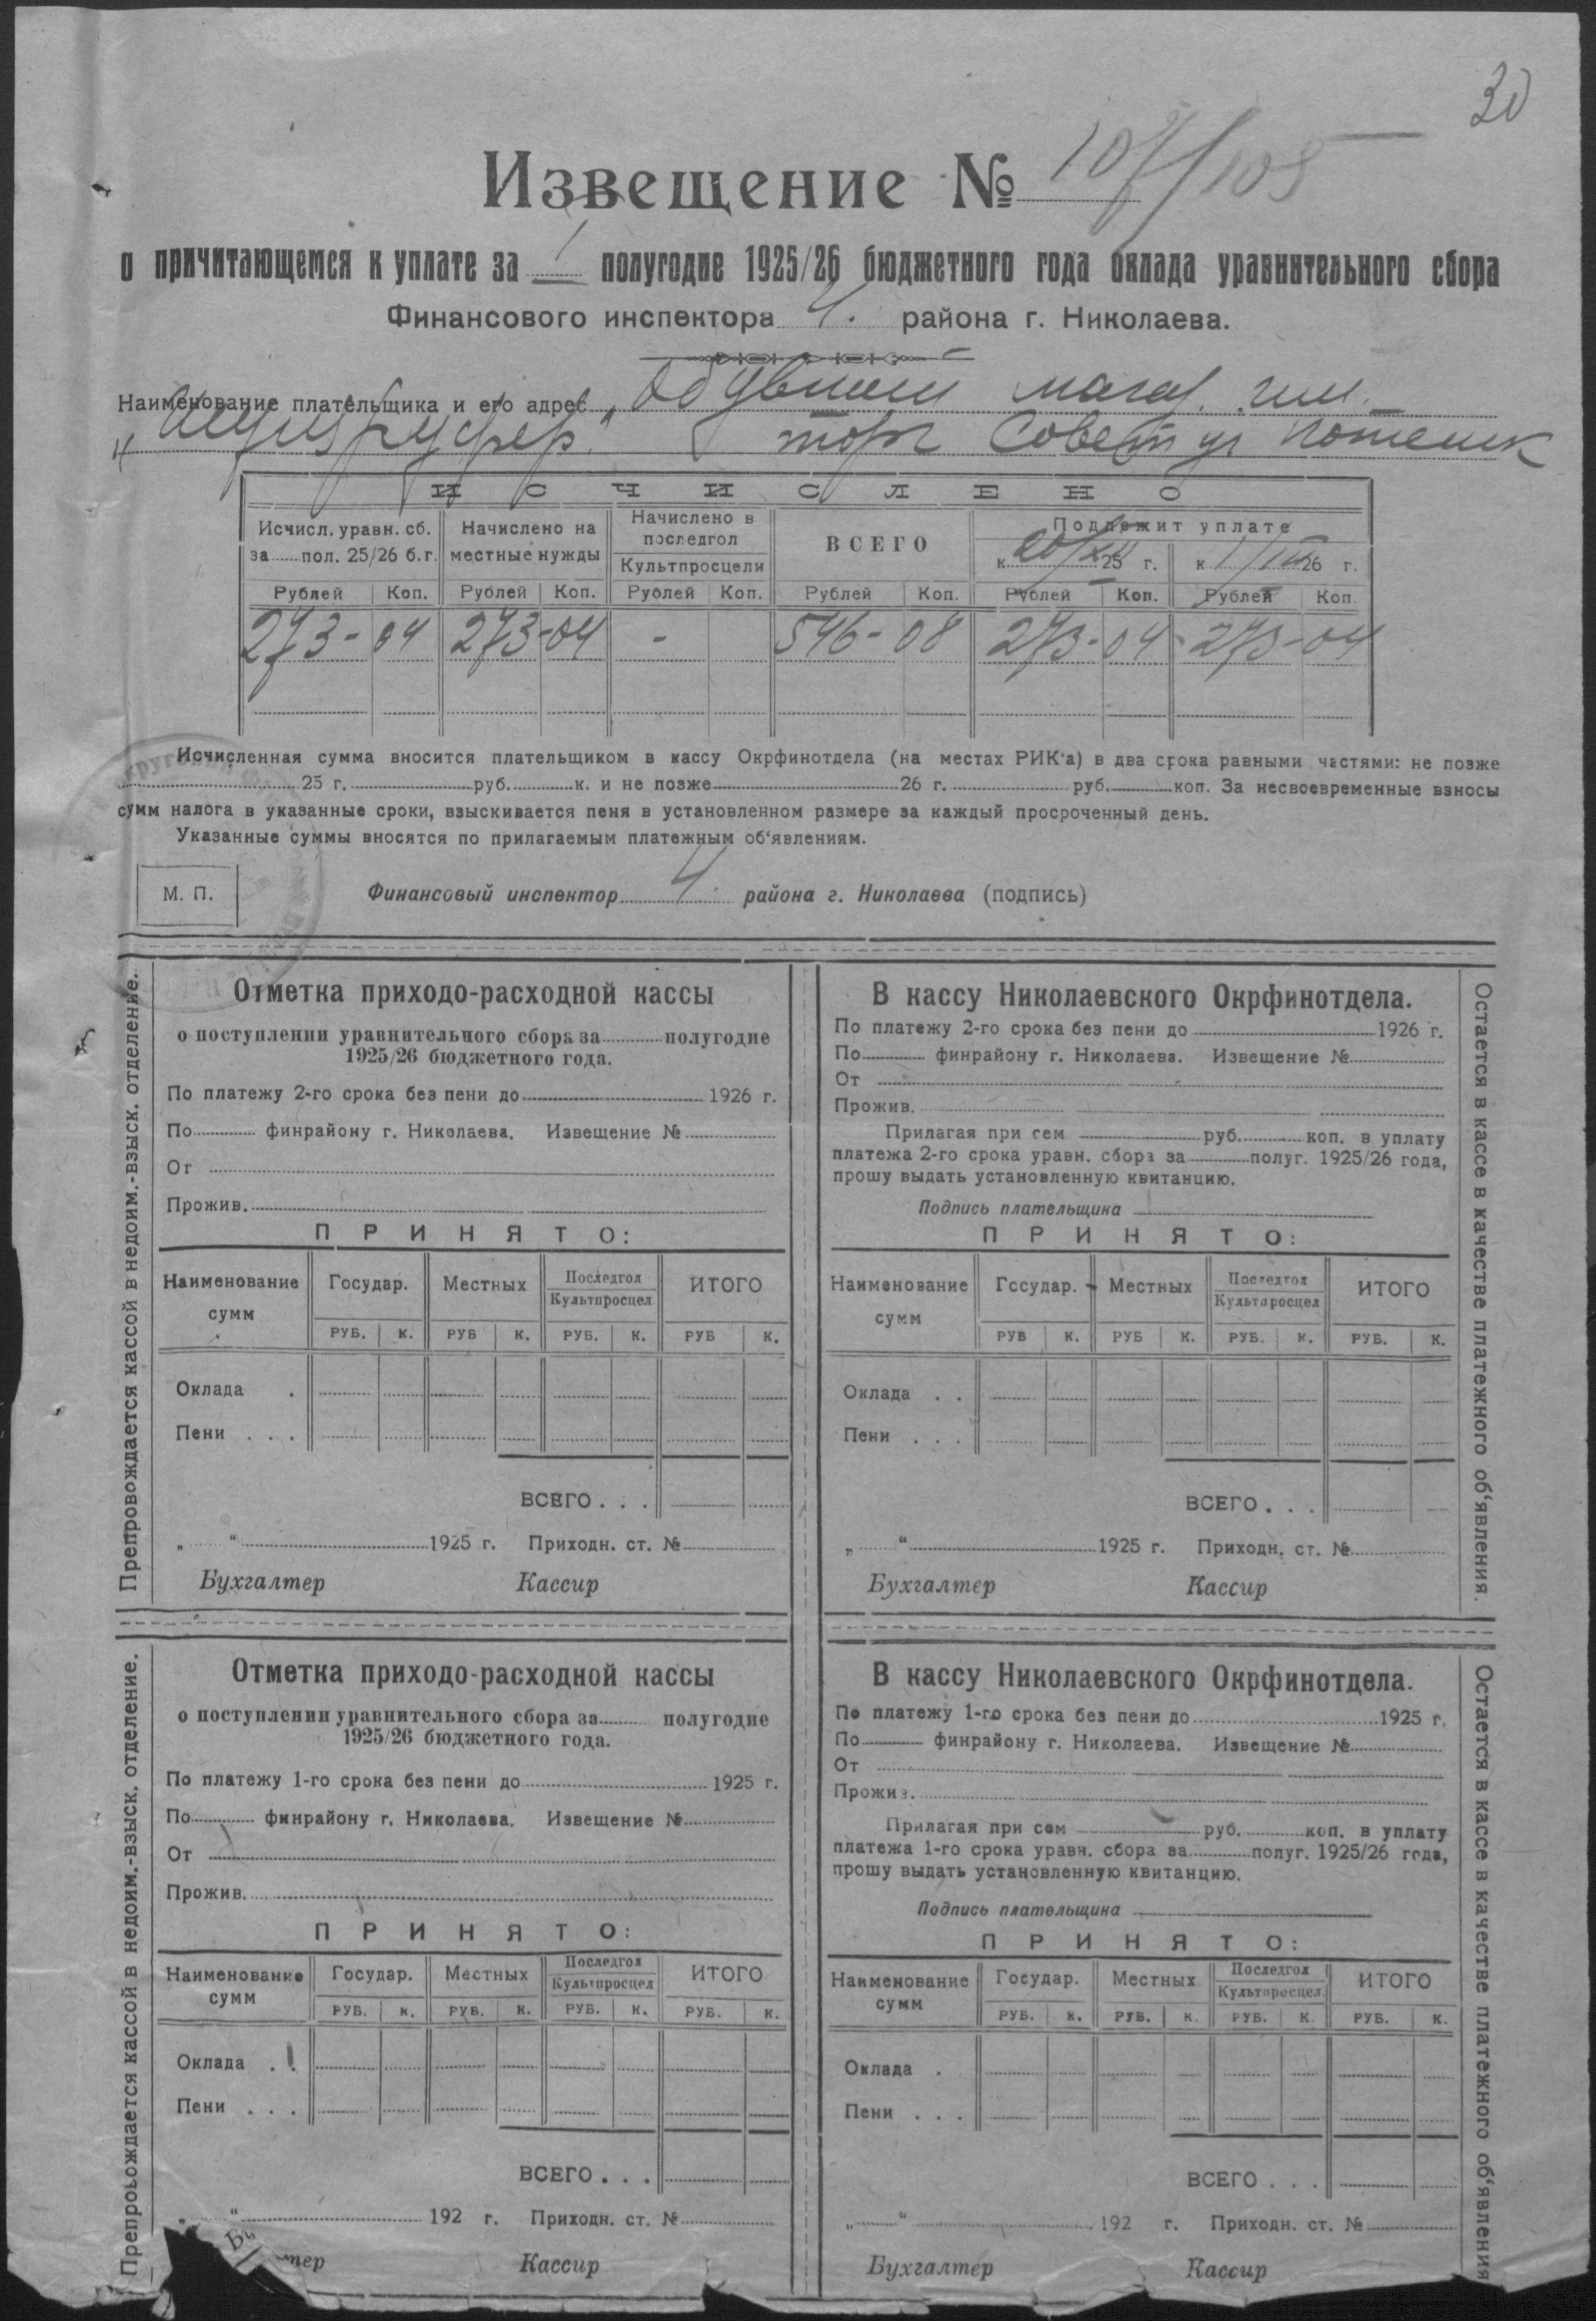 30
Извещение № 107/105
о причитающемся к уплате за I полугодие 1925/26 бюджетного года оклада уравнительного сбора
Финансового инспектора 4. района г. Николаева.
Наименование плательщика и его адрес
торг Совет ул
ИСЧИСЛЕНО
Исчисл. уравн. сб. за ... пол. 25/26 б.г. Начислено на местные нужды Начислено в последгол Культпросцели ВСЕГО Подлежит уплате
к 20/XII 25 г. к 1/III 26 г.
Рублей Коп. Рублей Коп. Рублей Коп. Рублей Коп. Рублей Коп. Рублей Коп.
273-04 273-04 - 546-08 273-04 273-04
Исчисленная сумма вносится плательщиком в кассу Окрфинотдела (на местах РИК‘а) в два срока равными частями: не позже
25 г. руб. к. и не позже 26 г. руб. коп. За несвоевременные взносы
сумм налога в указанные сроки, взыскивается пеня в установленном размере за каждый просроченный день.
Указанные суммы вносятся по прилагаемым платежным об‘явлениям.
М. П. Финансовый инспектор 4. района г. Николаева (подпись)
Препровождается кассой в недоим.-взыск. отделение.
Отметка приходо-расходной кассы
о поступлении уравнительного сбора за полугодие
1925/26 бюджетного года.
По платежу 2-го срока без пени до 1926 г.
По финрайону г. Николаева. Извещение №
От
Прожив.
ПРИНЯТО:
Наименование сумм Государ. Местных Последгол Культпросцел ИТОГО
РУБ. К. РУБ К. РУБ. К. РУБ К.
Оклада .
Пени . . .
ВСЕГО . . .
„ “ 1925 г. Приходн. ст. №
Бухгалтер Кассир
В кассу Николаевского Окрфинотдела.
По платежу 2-го срока без пени до 1926 г.
По финрайону г. Николаева. Извещение №
От
Прожив.
Прилагая при сем руб. коп. в уплату
платежа 2-го срока уравн. сбора за полуг. 1925/26 года,
прошу выдать установленную квитанцию.
Подпись плательщика
ПРИНЯТО:
Наименование сумм Государ. Местных Последгол Культпросцел ИТОГО
РУБ К. РУБ К. РУБ. К. РУБ. К.
Оклада . .
Пени . . .
ВСЕГО . . .
„ “ 1925 г. Приходн. ст. №
Бухгалтер Кассир
Остается в кассе в качестве платежного об‘явления.
Препровождается кассой в недоим.-взыск. отделение.
Отметка приходо-расходной кассы
о поступлении уравнительного сбора за полугодие
1925/26 бюджетного года.
По платежу 1-го срока без пени до 1925 г.
По финрайону г. Николаева. Извещение №
От
Прожив.
ПРИНЯТО:
Наименование сумм Государ. Местных Последгол Культпросцел ИТОГО
РУБ. К. РУБ. К. РУБ. К. РУБ. К.
Оклада . .
Пени . . .
ВСЕГО . . .
„ “ 192 г. Приходн. ст. №
Кассир
В кассу Николаевского Окрфинотдела.
По платежу 1-го срока без пени до 1925 г.
По финрайону г. Николаева. Извещение №
От
Прожив.
Прилагая при сем руб. коп. в уплату
платежа 1-го срока уравн. сбора за полуг. 1925/26 года,
прошу выдать установленную квитанцию.
Подпись плательщика
ПРИНЯТО:
Наименование сумм Государ. Местных Последгол Культпросцел. ИТОГО
РУБ. К. РУБ. К. РУБ. К. РУБ. К.
Оклада .
Пени . . .
ВСЕГО . . .
„ “ 192 г. Приходн. ст. №
Бухгалтер Кассир
Остается в кассе в качестве платежного об‘явления